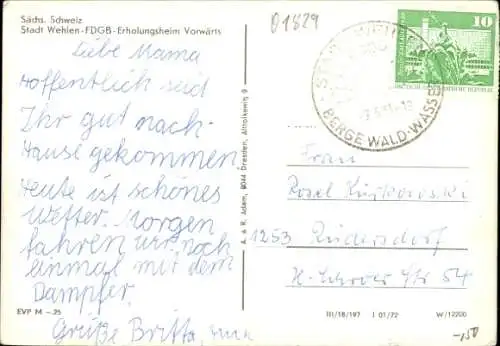 Sächs. Schweiz
Stadt Wehlen-FDGB-Erholungsheim Vorwärts
01829
Liebe Mama
Hoffentlich seid
Ihr gut nach-
Hause gekommen.
Heute ist schönes
Wetter. Morgen
fahren wir noch
einmal mit dem
Dampfer.
Grüße Britta,
EVP M -.25
A. u. R. Adam, 8044 Dresden, Altnickern 9
10
BERGE WALD-WASSER
Frau
Rosel
1253 Rüdersdorf
Str 54
III/18/197 I 01/72 W/12200
-,150